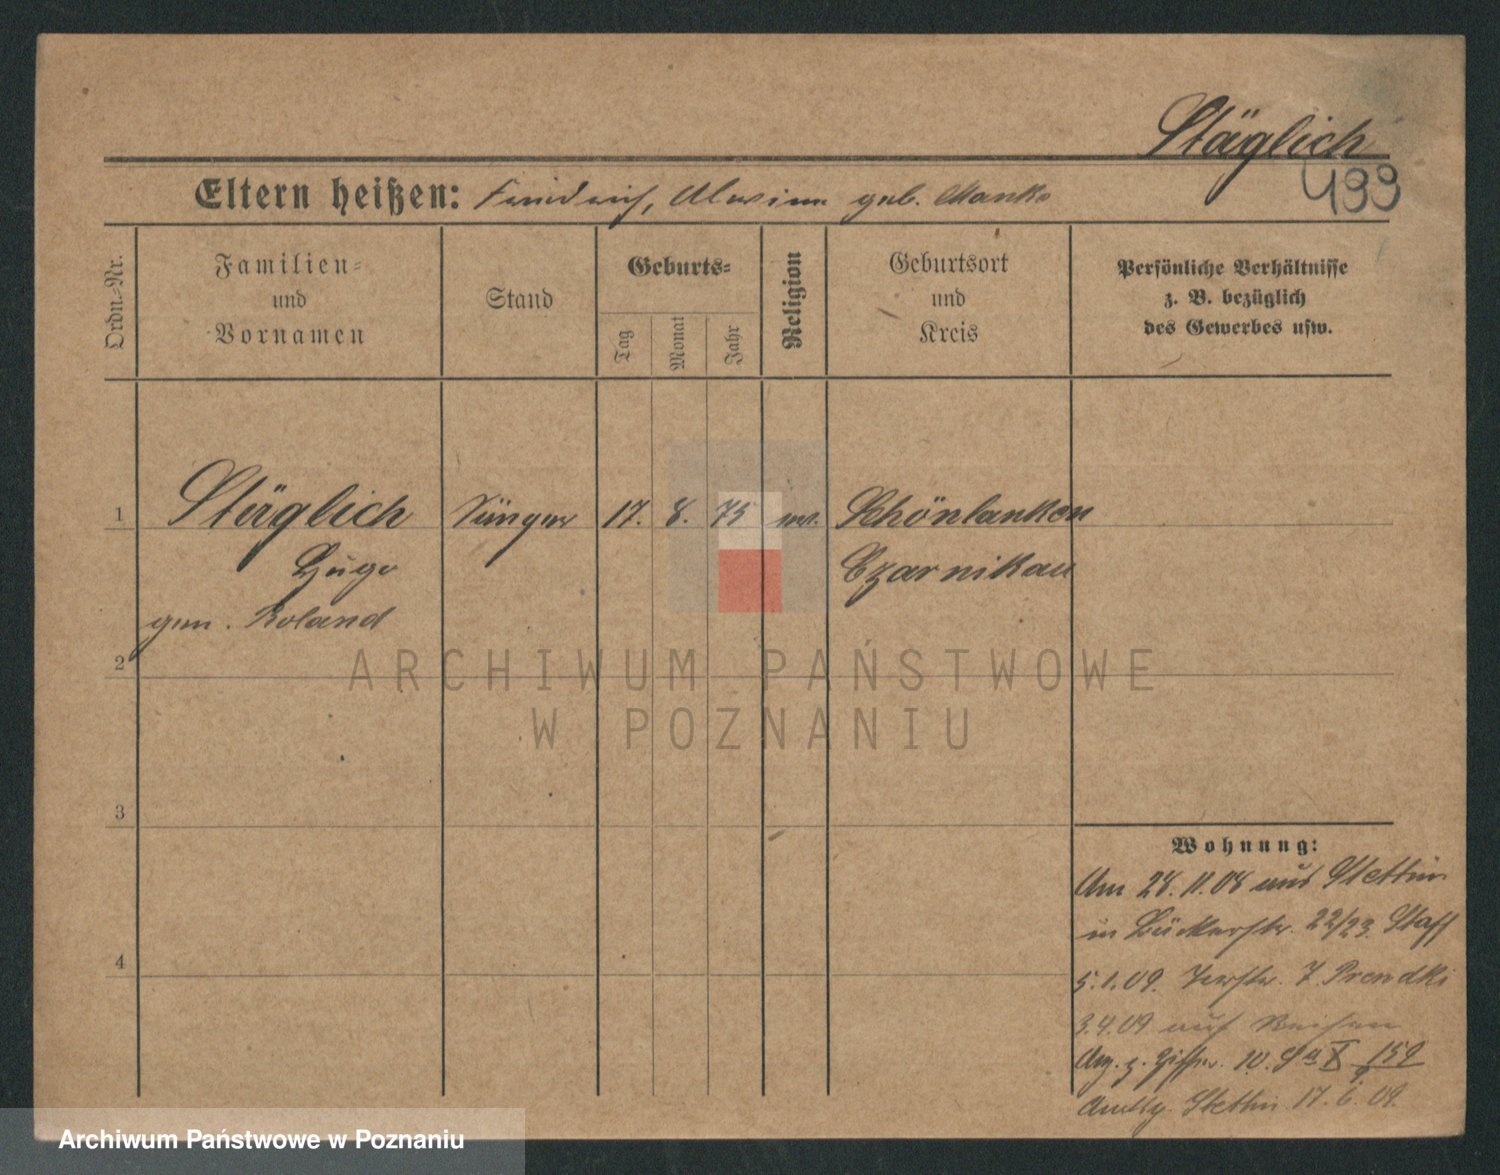 Stäglich
499
Eltern heißen: Friedrich, Alwine geb. Manko
Ordn.-Nr.
Familien-
und
Vornamen
Stand
Geburts-
Tag
Monat
Jahr
Religion
Geburtsort
und
Kreis
Persönliche Verhältnisse
z. B. bezüglich
des Gewerbes usw.
1
Stäglich
Sänger
17. 8. 75
ev.
Schönlanken
Hugo
Czarnikau
gen. Roland
2
ARCHIWUM PAŃSTWOWE
W POZNANIU
3
Wohnung:
Am 28.11.08 aus Stettin
in Bäckerstr. 22/23.
5.1.09. 7.
3.4.09 auf Reisen
10.
Stettin 17.6.09.
4
Archiwum Państwowe w Poznaniu